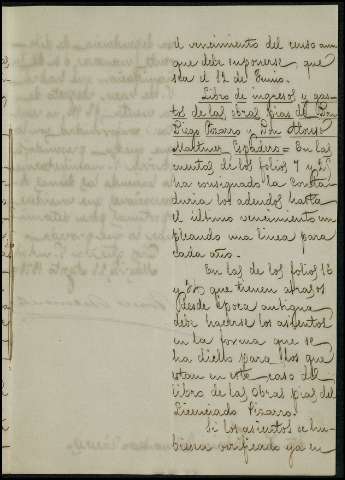 el vencimiento del censo aun
que debe suponerse, que
sea el 12 de Junio.
Libro de ingresos y gas-
tos de las obras pias de Don
Diego Pizarro y Don Alonso
Martinez Espadero = En las
cuentas de los folios 7 y
ha consignado la Conta
duria los adeudos hasta
el último vencimiento em
pleando una linea para
cada año.
En las de los folios 13
y que tienen atrasos
desde época antigua
debe hacerse los asientos
en la forma que se
ha dicho para los que
estan en este caso del
libro de las obras pias del
Licenciado Pizarro.
Si los asientos se hu-
biesen verificado ya en